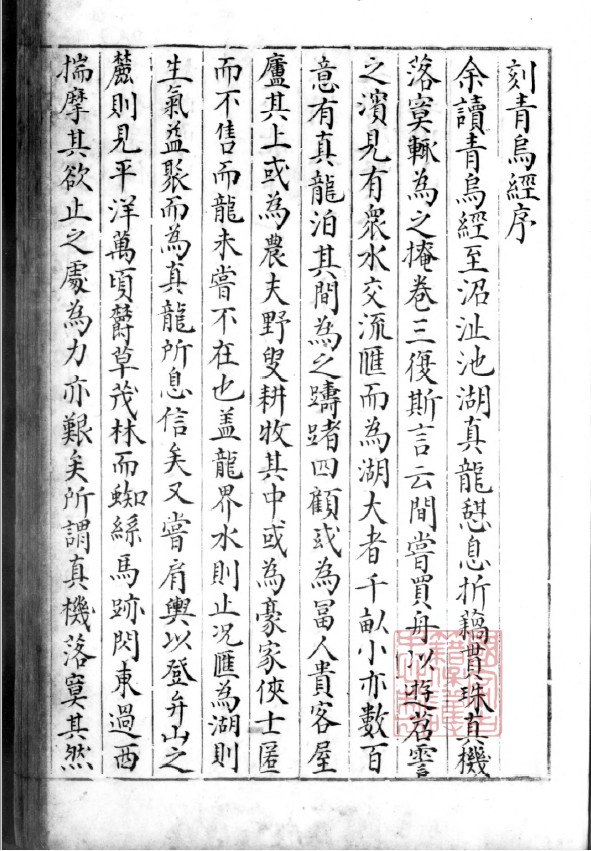 刻青烏經序
余讀青烏經至沼沚池湖真龍憇息折藕貫珠真機
落寞輒為之掩卷三復斯言云間嘗買舟以遊苕霅
之濱見有衆水交流匯而為湖大者千畝小亦數百
意有真龍泊其間為之躊躇四顧或為冨人貴客屋
廬其上或為農夫野叟耕牧其中或為豪家俠士匿
而不售而龍未嘗不在也盖龍界水則止况匯為湖則
生氣益聚而為真龍所息信矣又嘗肩輿以登弁山之
麓則見平洋萬頃欝草茂林而蜘絲馬跡閃東過西
揣摩其欲止之處為力亦艱矣所謂真機落寞其然